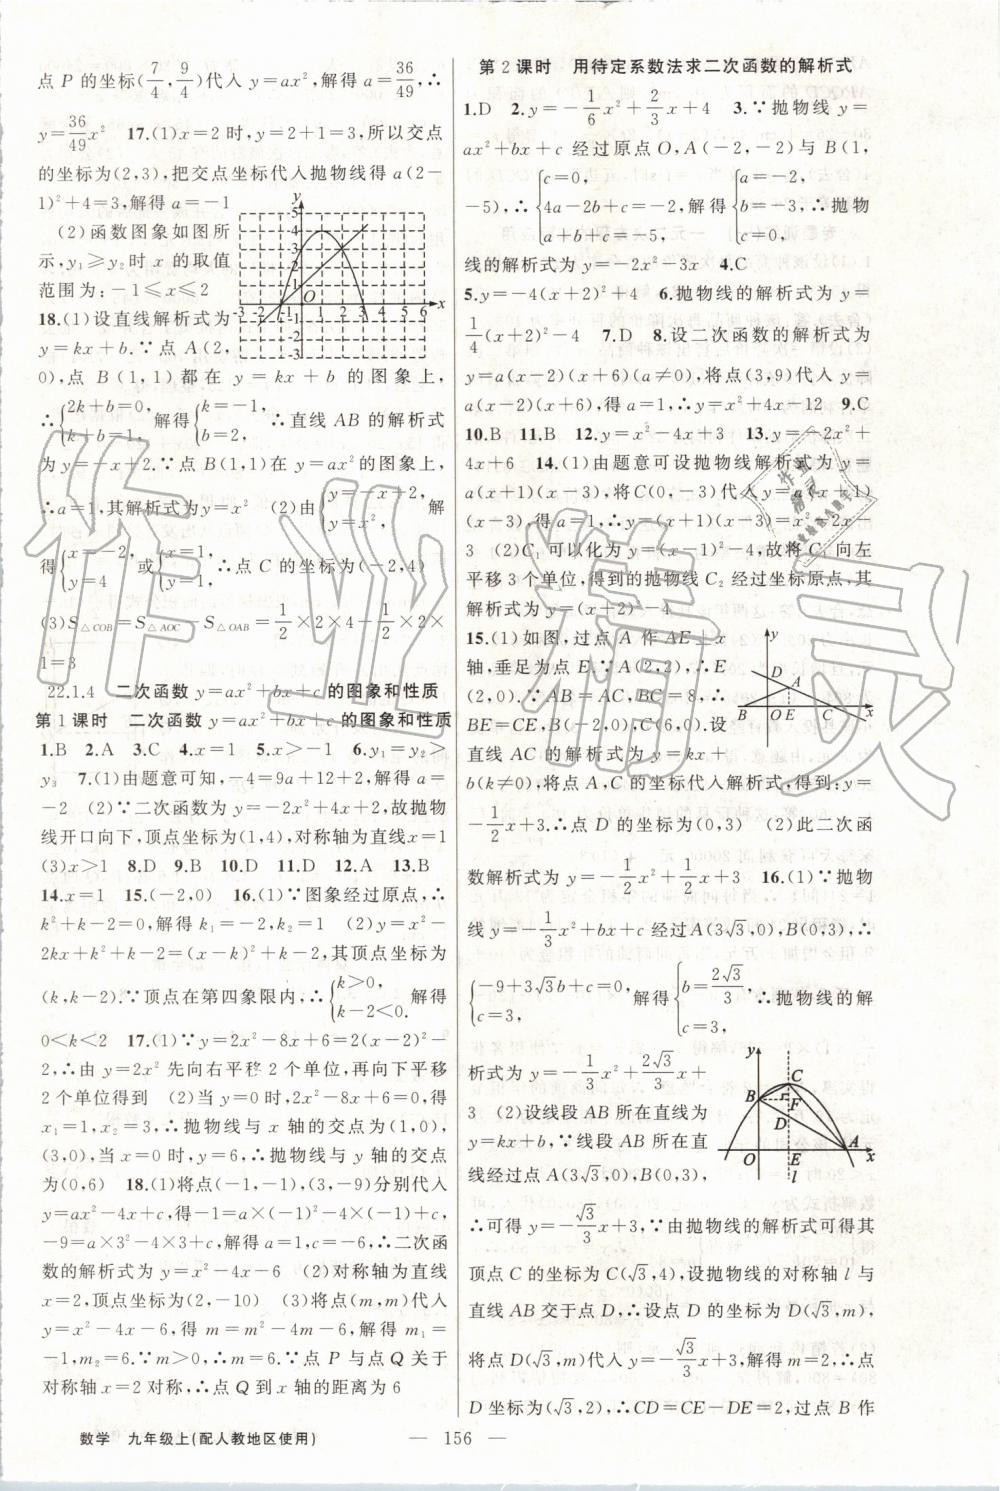 点 P 的坐标(7/4, 9/4)代入 y=ax²,解得 a=36/49,∴
y=36/49x² 17.(1)x=2 时,y=2+1=3,所以交点
的坐标为(2,3),把交点坐标代入抛物线得 a(2-
1)²+4=3,解得 a=-1
(2)函数图象如图所
示,y₁≥y₂时 x 的取值
范围为:-1≤x≤2
18.(1)设直线解析式为
y=kx+b.∵点 A(2,
0),点 B(1,1)都在 y=kx+b 的图象上,
∴{2k+b=0, k+b=1, 解得{k=-1, b=2, ∴直线 AB 的解析式
为 y=-x+2.∵点 B(1,1)在 y=ax²的图象上,
∴a=1,其解析式为 y=x² (2)由{y=-x+2, y=x², 解
得{x=-2, y=4 或{x=1, y=1, ∴点 C 的坐标为(-2,4)
(3)S△COB=S△AOC-S△OAB=1/2×2×4-1/2×2×
1=3
22.1.4 二次函数 y=ax²+bx+c 的图象和性质
第 1 课时 二次函数 y=ax²+bx+c 的图象和性质
1.B 2.A 3.C 4.x=1 5.x>-1 6.y₁=y₂>
y₃ 7.(1)由题意可知,-4=9a+12+2,解得 a=
-2 (2)∵二次函数为 y=-2x²+4x+2,故抛物
线开口向下,顶点坐标为(1,4),对称轴为直线 x=1
(3)x>1 8.D 9.B 10.D 11.D 12.A 13.B
14.x=1 15.(-2,0) 16.(1)∵图象经过原点,∴
k²+k-2=0,解得 k₁=-2,k₂=1 (2)y=x²-
2kx+k²+k-2=(x-k)²+k-2,其顶点坐标为
(k,k-2).∵顶点在第四象限内,∴{k>0, k-2<0. 解得
0<k<2 17.(1)∵y=2x²-8x+6=2(x-2)²-
2,∴由 y=2x²先向右平移 2 个单位,再向下平移
2 个单位得到 (2)当 y=0 时,2x²-8x+6=0,得
x₁=1,x₂=3,∴抛物线与 x 轴的交点为(1,0),
(3,0),当 x=0 时,y=6,∴抛物线与 y 轴的交点
为(0,6) 18.(1)将点(-1,-1),(3,-9)分别代入
y=ax²-4x+c,得-1=a×(-1)²-4×(-1)+c,
-9=a×3²-4×3+c,解得 a=1,c=-6,∴二次函
数的解析式为 y=x²-4x-6 (2)对称轴为直线
x=2,顶点坐标为(2,-10) (3)将点(m,m)代入
y=x²-4x-6,得 m=m²-4m-6,解得 m₁=
-1,m₂=6.∵m>0,∴m=6.∵点 P 与点 Q 关于
对称轴 x=2 对称,∴点 Q 到 x 轴的距离为 6
第 2 课时 用待定系数法求二次函数的解析式
1.D 2.y=-1/6x²+2/3x+4 3.∵抛物线 y=
ax²+bx+c 经过原点 O,A(-2,-2)与 B(1,
-5),∴{c=0, 4a-2b+c=-2, a+b+c=-5, 解得{a=-2, b=-3, c=0, ∴抛物
线的解析式为 y=-2x²-3x 4.C
5.y=-4(x+2)²+4 6.抛物线的解析式为 y=
1/4(x+2)² 7.D 8.设二次函数的解析式为
y=a(x-2)(x+6)(a≠0),将点(3,9)代入 y=
a(x-2)(x+6),得 a=1,∴y=x²+4x-12 9.C
10.B 11.B 12.y=x²-4x+3 13.y=-2x²+
4x+6 14.(1)由题意可设抛物线解析式为 y=
a(x+1)(x-3),将 C(0,-3)代入 y=a(x+1)
(x-3),得 a=1,∴y=(x+1)(x-3)=x²-2x-
3 (2)C₁ 可以化为 y=(x-1)²-4,故将 C₁ 向左
平移 3 个单位,得到的抛物线 C₂ 经过坐标原点,其
解析式为 y=(x+2)²-4
15.(1)如图,过点 A 作 AE⊥x
轴,垂足为点 E.∵A(2,2),∴E
(2,0).∵AB=AC,BC=8,∴
BE=CE,B(-2,0),C(6,0).设
直线 AC 的解析式为 y=kx+
b(k≠0),将点 A,C 的坐标代入解析式,得到:y=
-1/2x+3.∴点 D 的坐标为(0,3) (2)此二次函
数解析式为 y=-1/2x²+1/2x+3 16.(1)∵抛物
线 y=-1/3x²+bx+c 经过 A(3√3,0),B(0,3),∴
{-9+3√3b+c=0, c=3, 解得{b=2√3/3, c=3, ∴抛物线的解
析式为 y=-1/3x²+2√3/3x+
3 (2)设线段 AB 所在直线为
y=kx+b,∵线段 AB 所在直
线经过点 A(3√3,0),B(0,3),
∴可得 y=-√3/3x+3,∵由抛物线的解析式可得其
顶点 C 的坐标为 C(√3,4),设抛物线的对称轴 l 与
直线 AB 交于点 D,∴设点 D 的坐标为 D(√3,m),
将点 D(√3,m)代入 y=-√3/3x+3,解得 m=2,∴点
D 坐标为(√3,2),∴CD=CE-DE=2,过点 B 作
数学 九年级上(配人教地区使用)
— 156 —
作业精灵